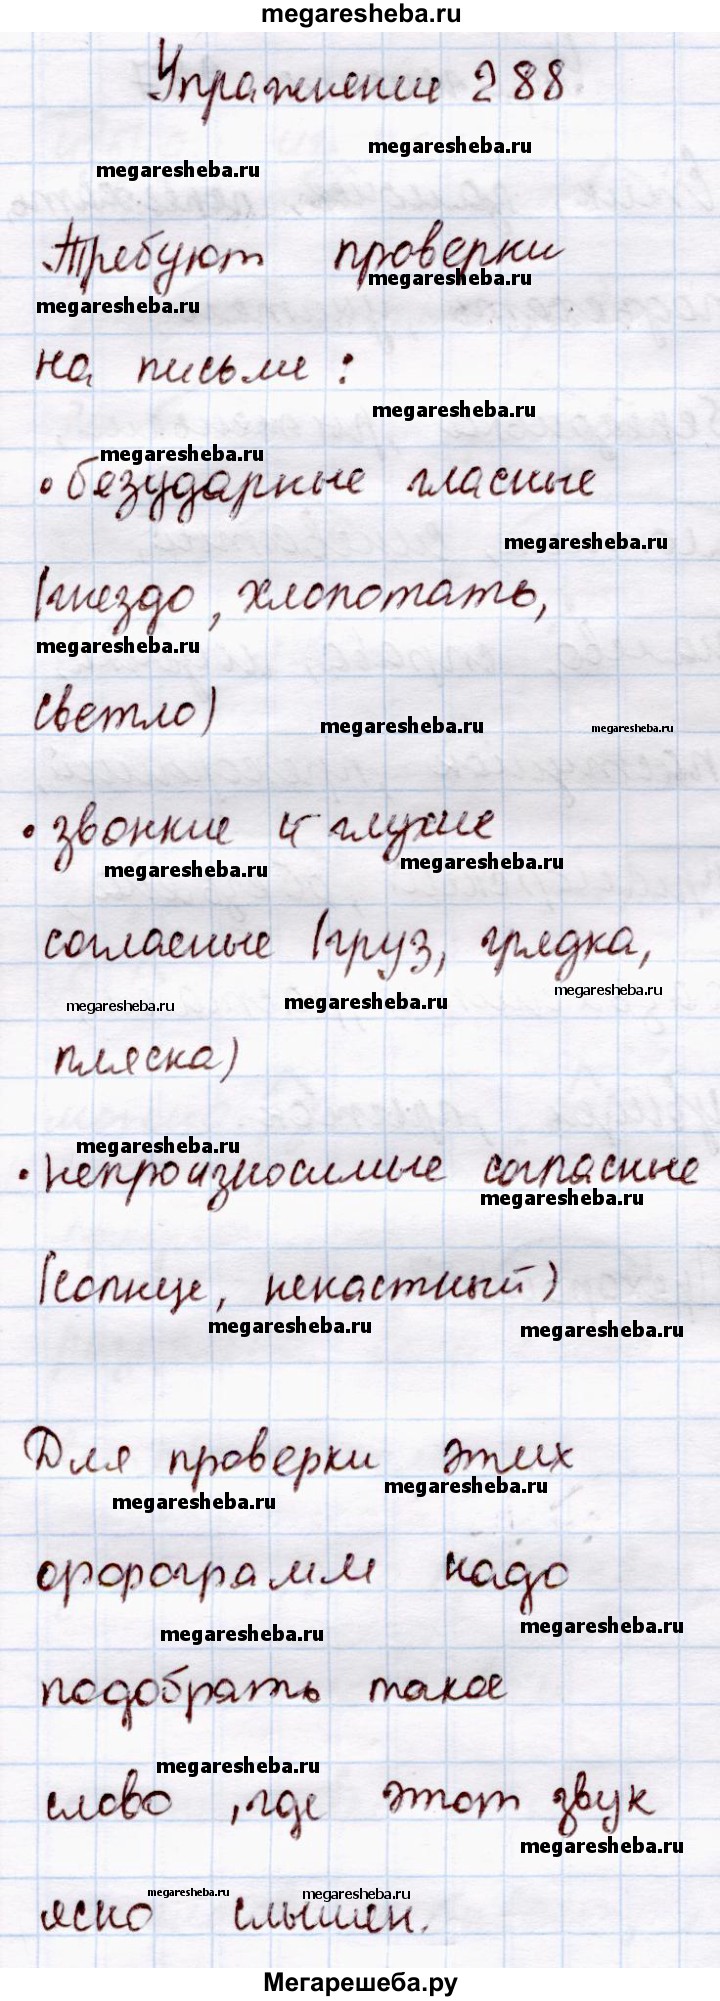 megaresheba.ru
Упражнение 288
megaresheba.ru
megaresheba.ru
Требуют проверки
megaresheba.ru
megaresheba.ru
на письме:
megaresheba.ru
megaresheba.ru
• безударные гласные
megaresheba.ru
(гнездо, хлопотать,
megaresheba.ru
светло)
megaresheba.ru
megaresheba.ru
• звонкие и глухие
megaresheba.ru
megaresheba.ru
согласные (груз, грядка,
megaresheba.ru
megaresheba.ru
megaresheba.ru
пляска)
megaresheba.ru
• непроизносимые согласные
megaresheba.ru
(солнце, ненастный)
megaresheba.ru
megaresheba.ru
Для проверки этих
megaresheba.ru
megaresheba.ru
орфограмм надо
megaresheba.ru
megaresheba.ru
подобрать такое
megaresheba.ru
слово, где этот звук
megaresheba.ru
megaresheba.ru
megaresheba.ru
ясно слышен.
Мегарешеба.ру